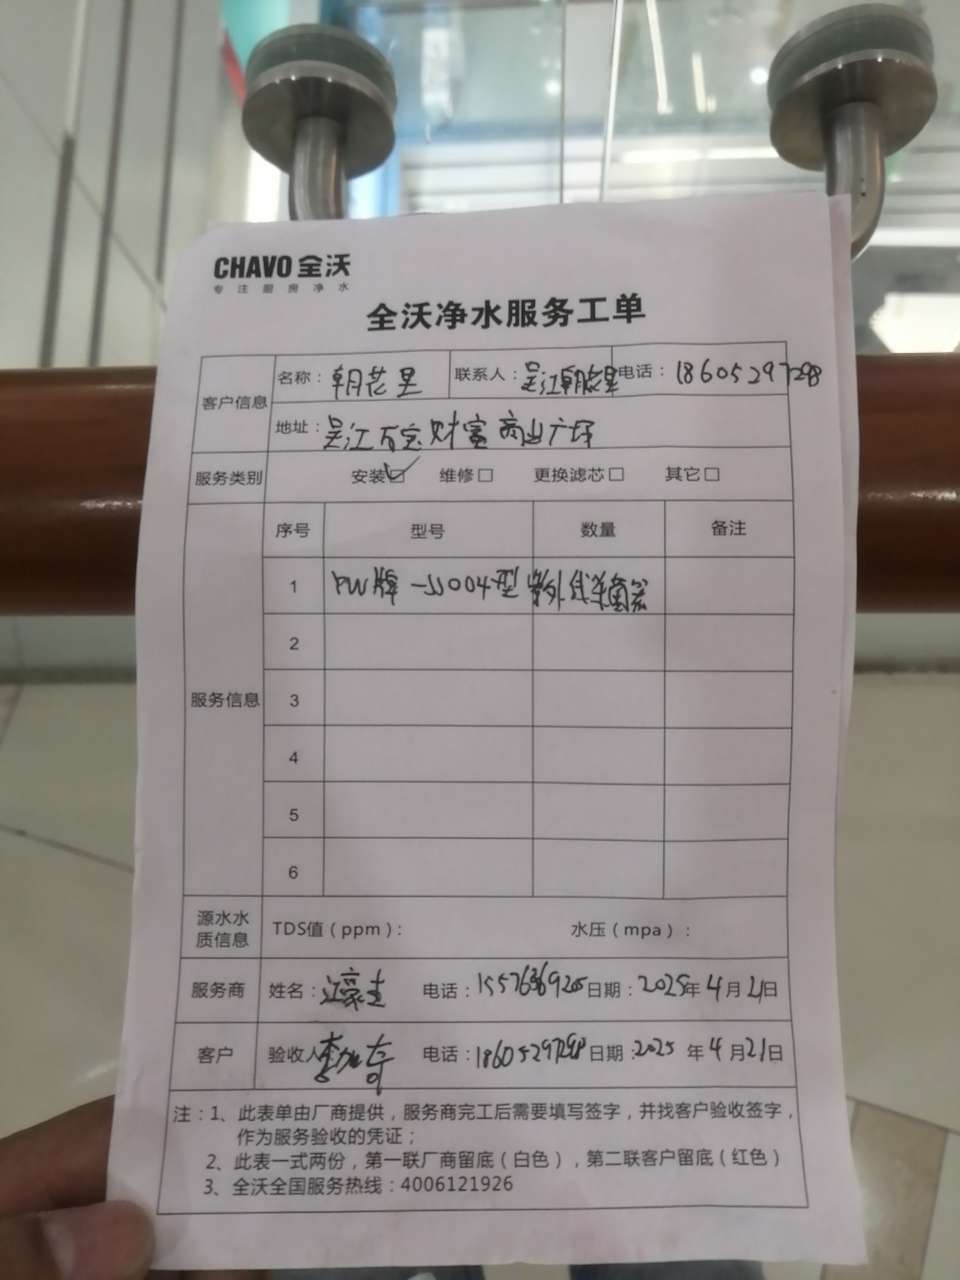 CHAVO 全沃
专注厨房净水
全沃净水服务工单
客户信息 名称：朝花里 联系人：吴江朝花里 电话：18605297298
地址：吴江万宝财富商业广场
服务类别 安装☑ 维修□ 更换滤芯□ 其它□
服务信息 序号 型号 数量 备注
1 FW牌-JJ004型 紫外线杀菌器
2
3
4
5
6
源水水质信息 TDS值（ppm）： 水压（mpa）：
服务商 姓名： 电话： 日期：2025年4月21日
客户 验收人 电话：18605297298 日期：2025年4月21日
注：1、此表单由厂商提供，服务商完工后需要填写签字，并找客户验收签字，
作为服务验收的凭证；
2、此表一式两份，第一联厂商留底（白色），第二联客户留底（红色）
3、全沃全国服务热线：4006121926